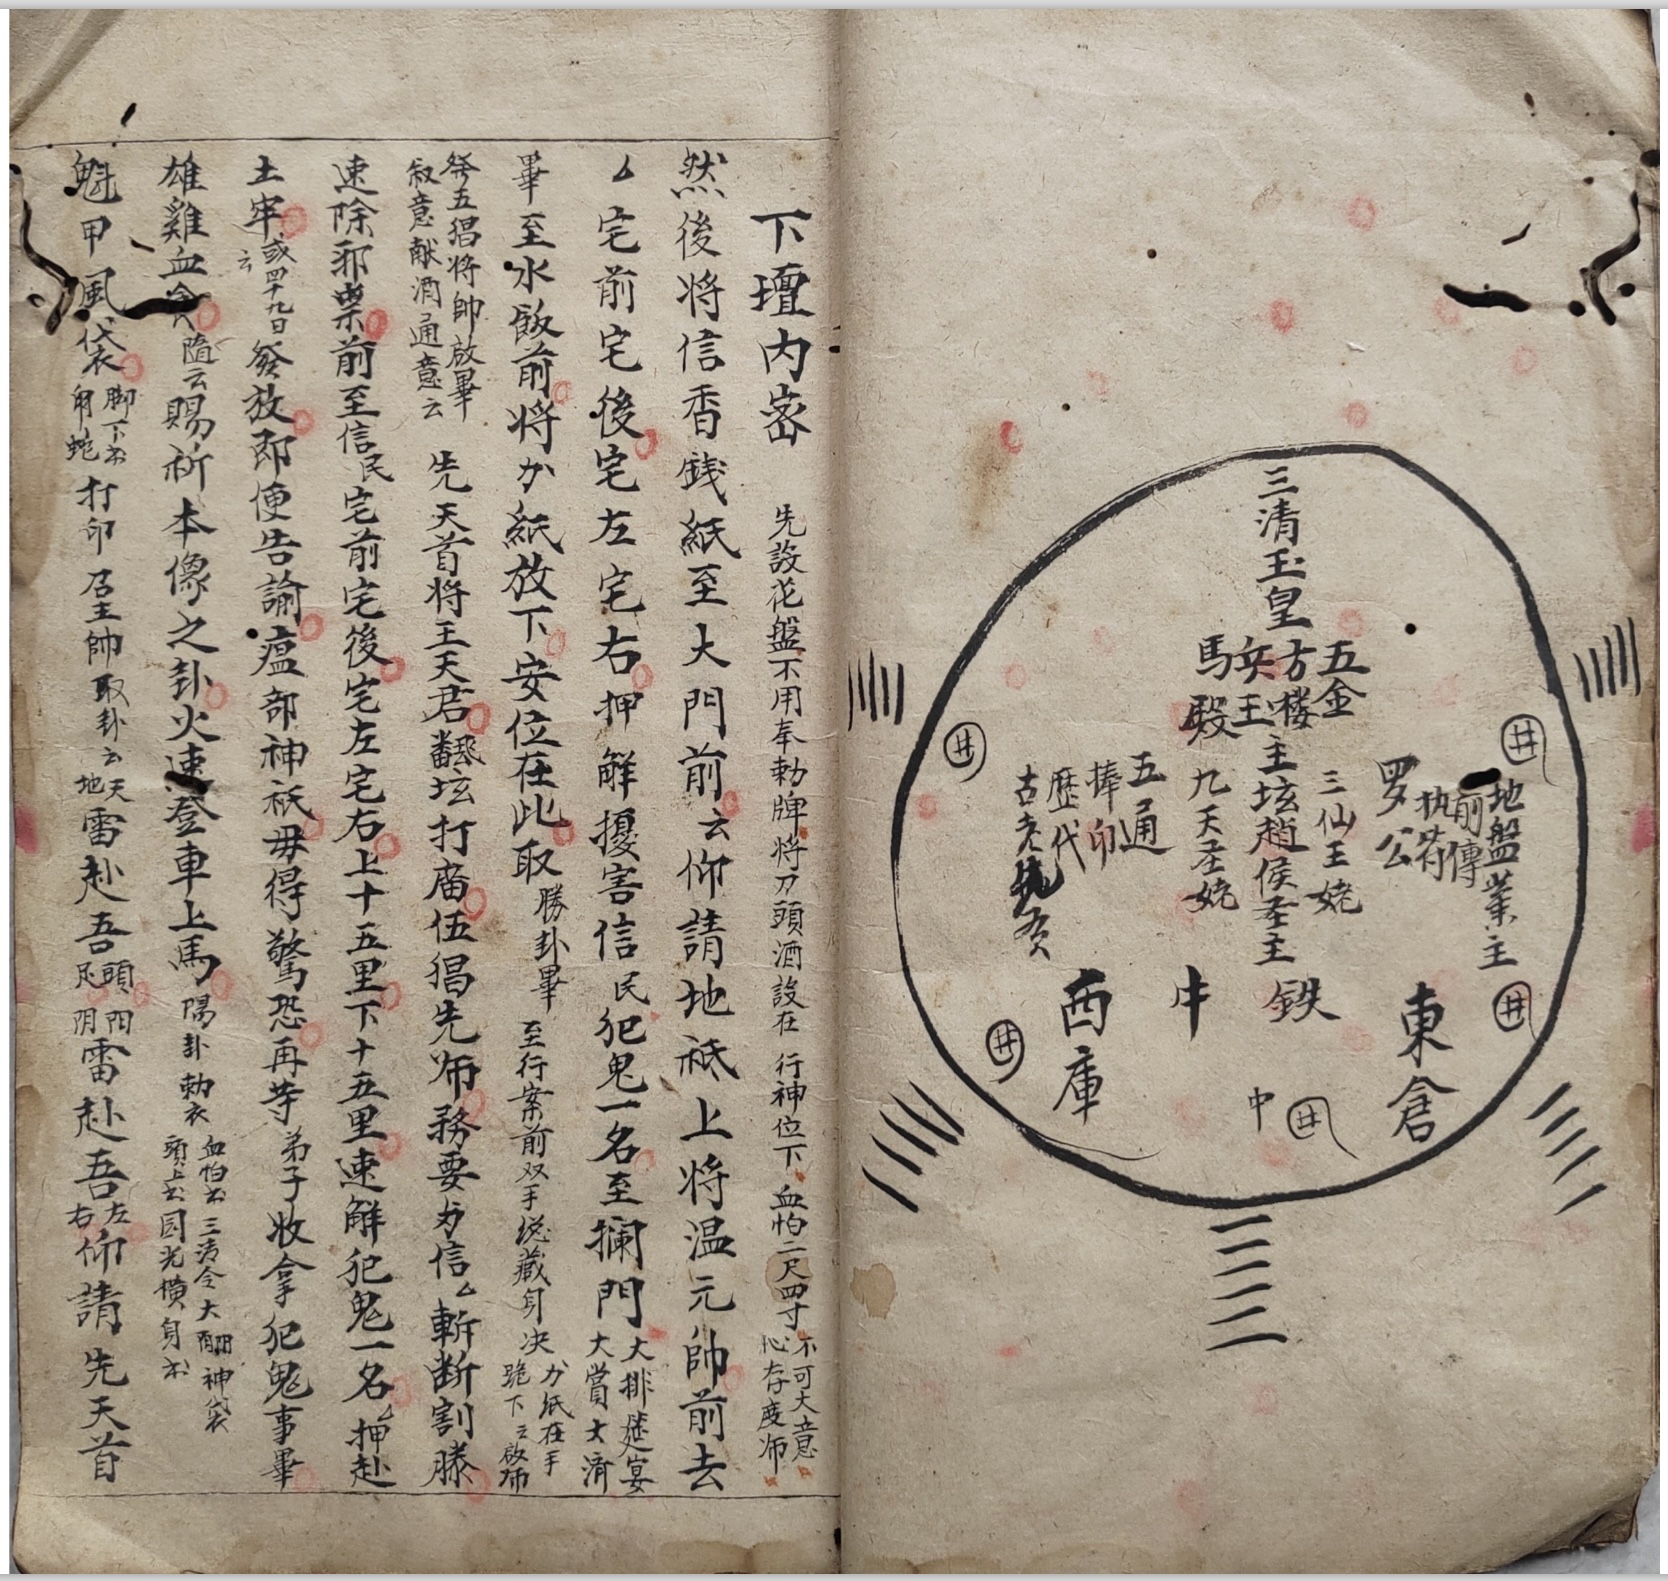 三清玉皇
五金
方楼
兵王
馬殿
主坛趙侯圣主
三仙王姥
九天圣姥
地盤業主
前傳
执符
罗公
五通
捧印
歷代
古老
東倉
鉄
牛
西庫
中
井
井
井
井
井
下壇内密 先設花盤不用奉勅牌将刀頭酒設在行神位下 血怕二尺四寸 不可大意 心存度师
然後将信香銭紙至大門前云仰請地祗上将温元帥前去
厶宅前宅後宅左宅右押解擾害信民犯鬼一名至攔門 大排筵宴 大賞大済
畢至水飯前将力紙放下安位在此取 勝卦畢 至行案前双手 藏身决 力紙在手 跪下云啟师
祭五猖将帥啟畢 叙意献酒通意云 先天首将王天君翻坛打廟伍猖先师務要为信厶斬断割滕
速除邪祟前至信民宅前宅後宅左宅右上十五里下十五里速解犯鬼一名厶押赴
土牢 或四十九日云 發放即便告諭瘟部神祗毋得驚恐再等弟子收拿犯鬼事畢
雄雞血 隨云賜祈本像之卦火速登車上馬 陽卦 勅衣 血怕 三清令大 神袋 頭上 园光横身
魁甲風袋 脚下 蛇 打印 召主帥取卦云 天地雷赴吾 頭 足 阳 阴 雷赴吾 左 右 仰請先天首